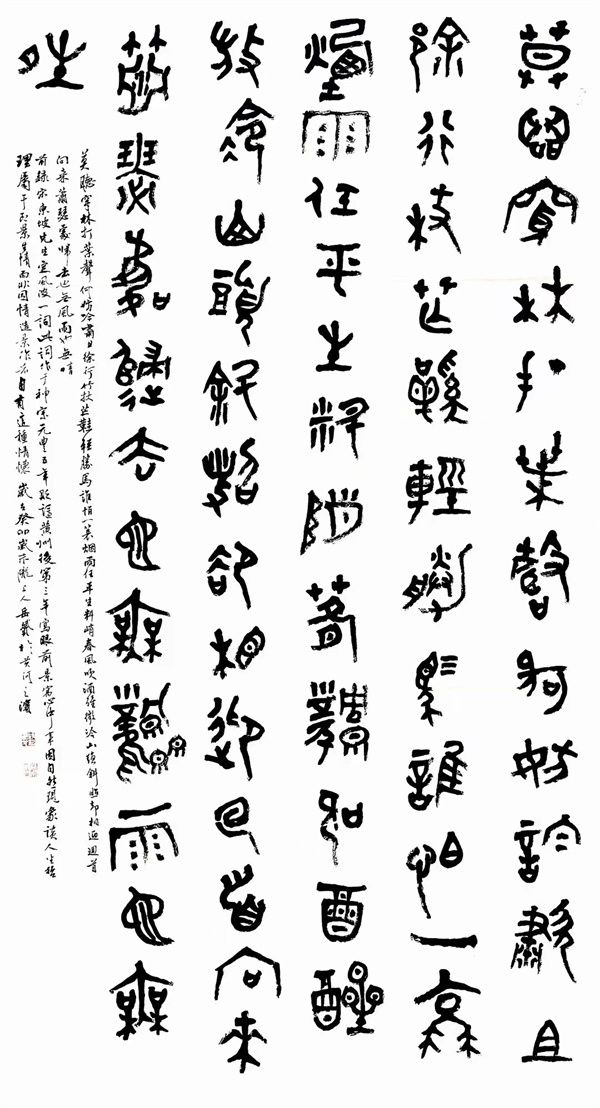 莫聽穿林打葉聲何妨吟嘯且
徐行杖芒鞋輕勝馬誰怕一蓑
煙雨任平生料峭春風吹酒醒
微冷山頭斜照卻相迎回首向來
蕭瑟處歸去也無風雨也無
晴
莫聽穿林打葉聲何妨吟嘯且徐行竹杖芒鞋輕勝馬誰怕一蓑烟雨任平生料峭春風吹酒醒微冷山頭斜照却相迎迴首
向來蕭瑟處歸去也無風雨也無晴
前錄宋東坡先生定風波一詞此詞作于神宗元豐五年貶謫黃州後第三年寫眼前景寓心中事因自然現象談人生哲
理屬于即景生情而非因情造景作者自有這種情懷 歲在癸卯歲末隴上人岳於黃河之濱